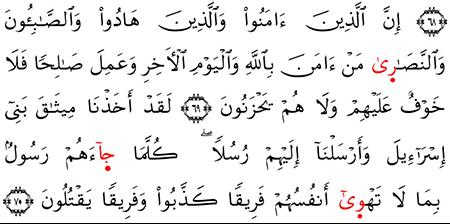 ﴿٦٨﴾ إِنَّ ٱلَّذِينَ ءَامَنُوا۟ وَٱلَّذِينَ هَادُوا۟ وَٱلصَّـٰبِـُٔونَ
وَٱلنَّصَـٰرَىٰ مَنْ ءَامَنَ بِٱللَّهِ وَٱلْيَوْمِ ٱلْـَٔاخِرِ وَعَمِلَ صَـٰلِحًا فَلَا
خَوْفٌ عَلَيْهِمْ وَلَا هُمْ يَحْزَنُونَ ﴿٦٩﴾ لَقَدْ أَخَذْنَا مِيثَـٰقَ بَنِىٓ
إِسْرَٰٓءِيلَ وَأَرْسَلْنَآ إِلَيْهِمْ رُسُلًا ۖ كُلَّمَا جَآءَهُمْ رَسُولٌۢ
بِمَا لَا تَهْوَىٰٓ أَنفُسُهُمْ فَرِيقًا كَذَّبُوا۟ وَفَرِيقًا يَقْتُلُونَ ﴿٧٠﴾